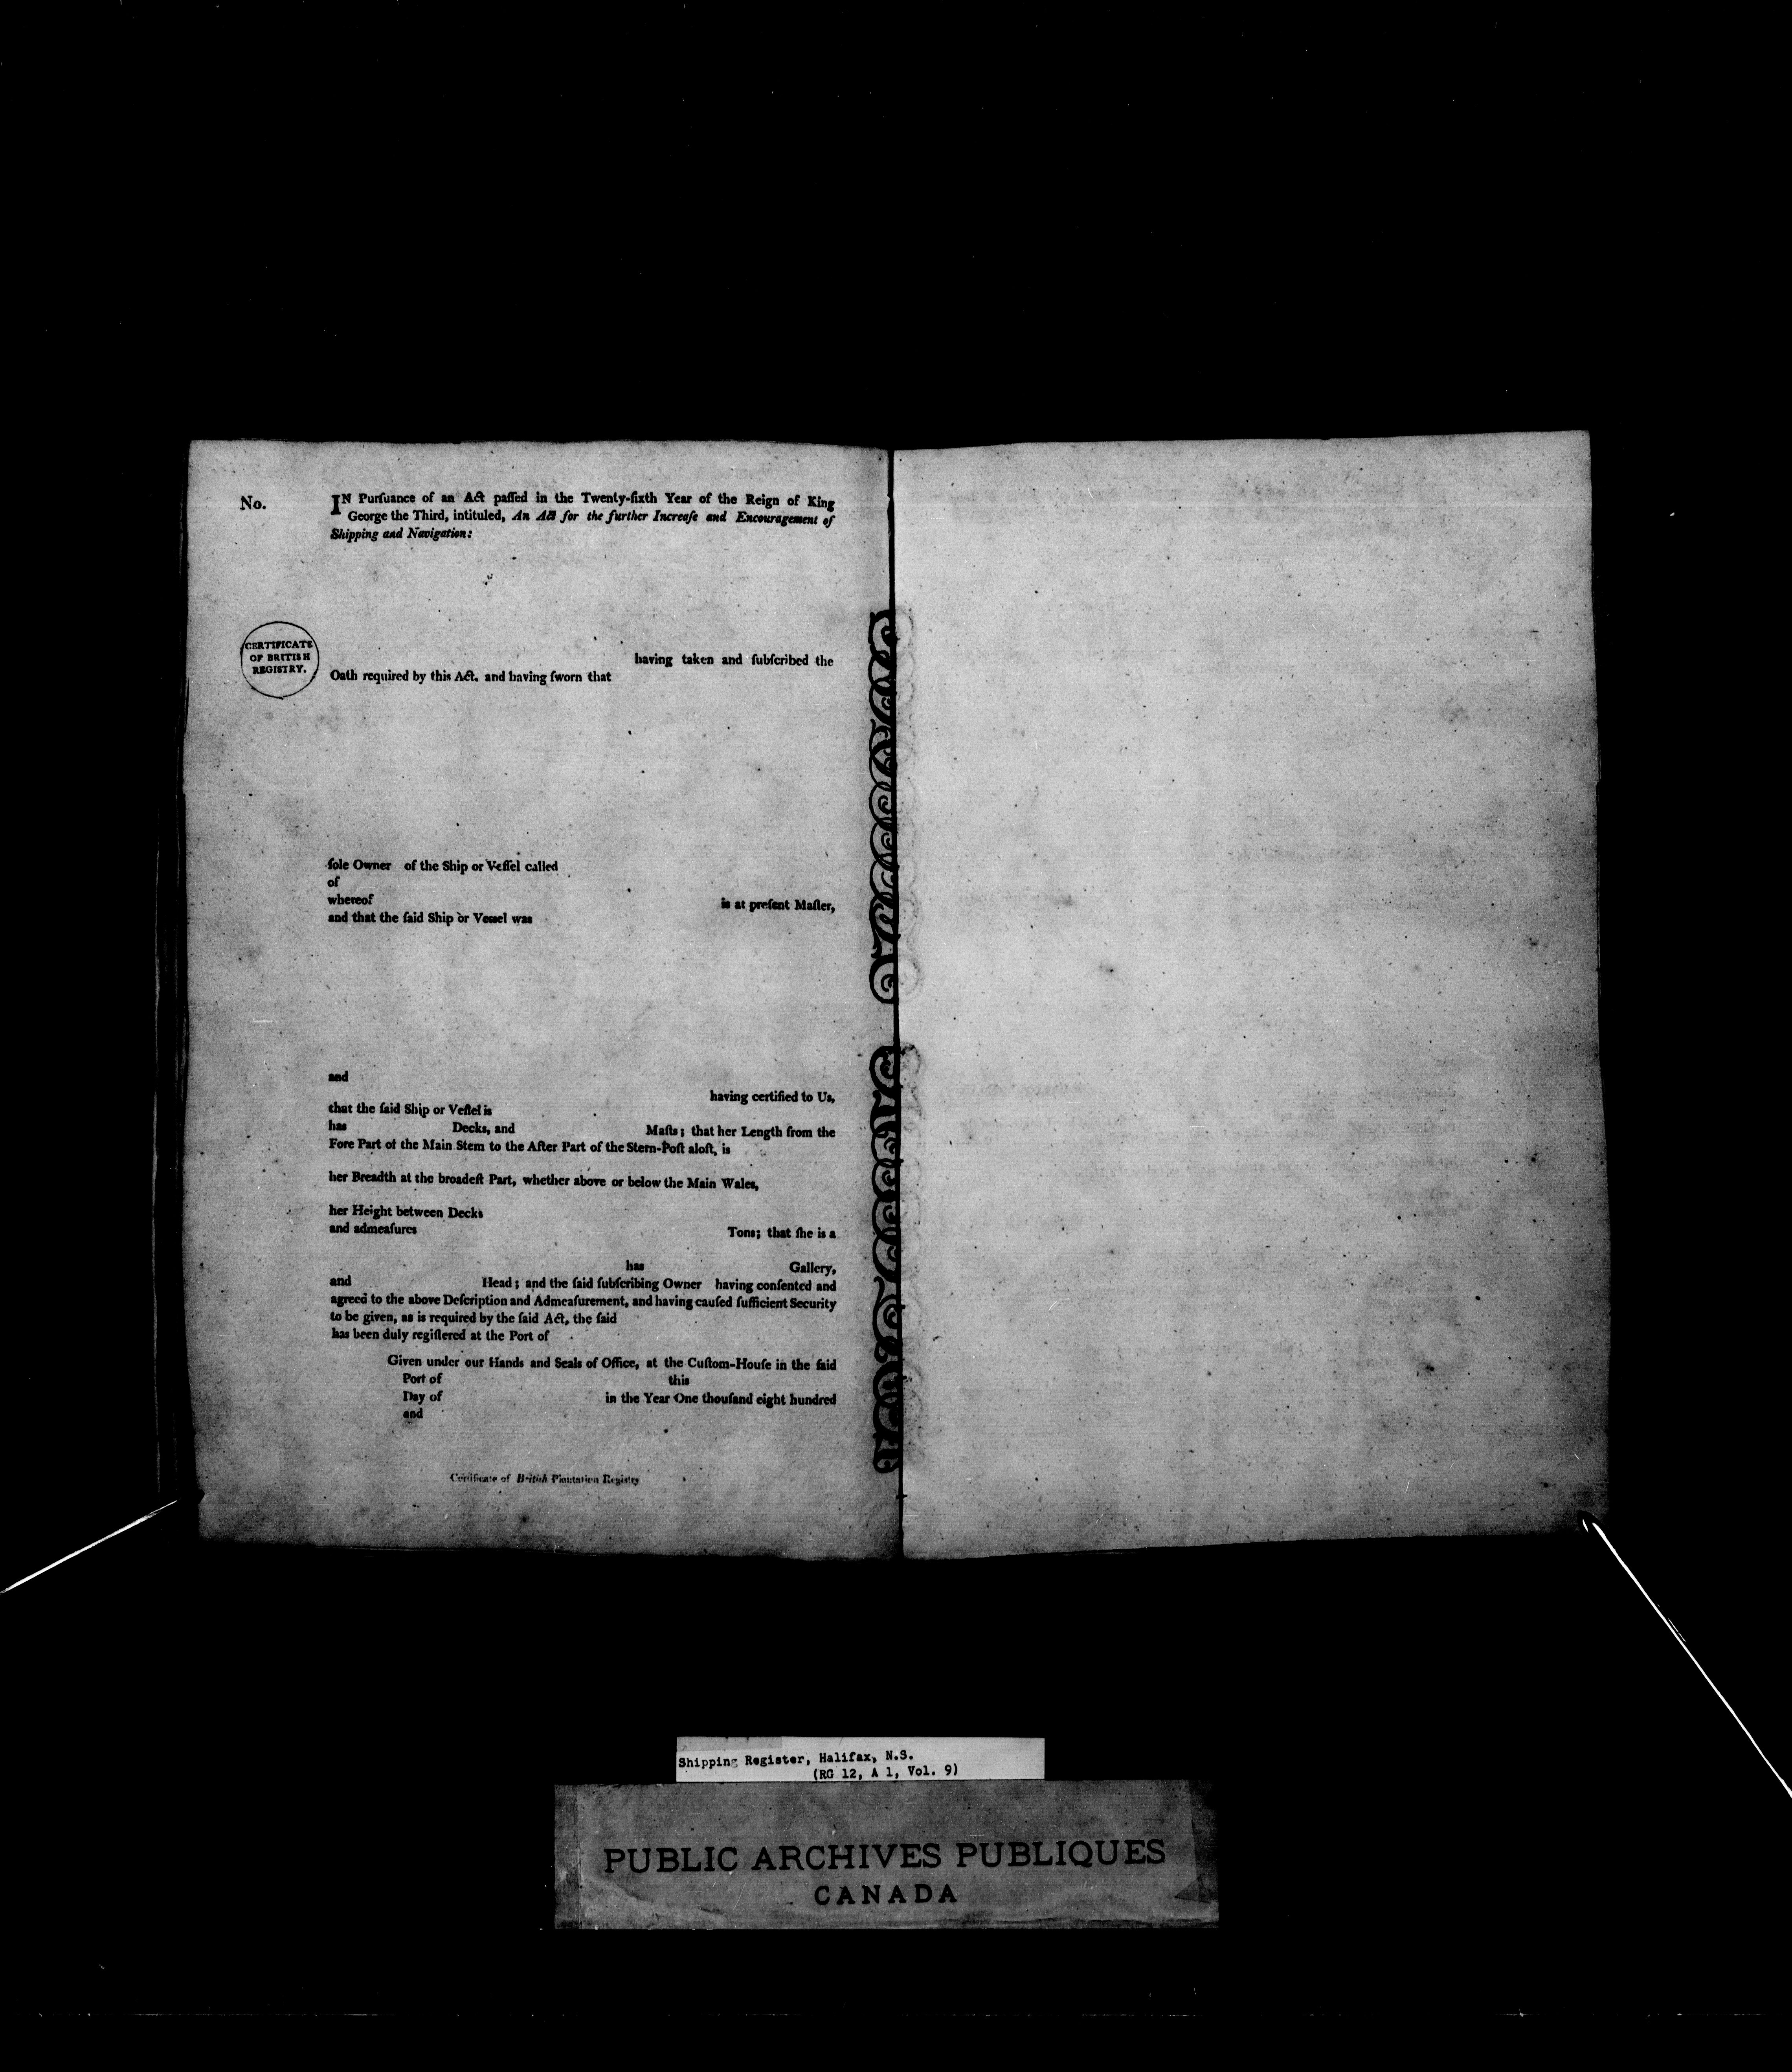 No.
IN Purſuance of an Act paſſed in the Twenty-ſixth Year of the Reign of King
George the Third, intituled, An Act for the further Increaſe and Encouragement of
Shipping and Navigation:
CERTIFICATE
OF BRITISH
REGISTRY.
having taken and ſubſcribed the
Oath required by this Act. and having ſworn that
ſole Owner of the Ship or Veſſel called
of
whereof is at preſent Maſter,
and that the ſaid Ship or Vessel was
and
having certified to Us,
that the ſaid Ship or Veſſel is
has Decks, and Maſts; that her Length from the
Fore Part of the Main Stem to the After Part of the Stern-Poſt aloft, is
her Breadth at the broadeſt Part, whether above or below the Main Wales,
her Height between Decks
and admeaſures Tons; that ſhe is a
has Gallery,
and Head; and the ſaid ſubſcribing Owner having conſented and
agreed to the above Deſcription and Admeaſurement, and having cauſed ſufficient Security
to be given, as is required by the ſaid Act, the ſaid
has been duly regiſtered at the Port of
Given under our Hands and Seals of Office, at the Cuſtom-Houſe in the ſaid
Port of this
Day of in the Year One thouſand eight hundred
and
Certificate of British Plantation Registry
Shipping Register, Halifax, N.S.
(RG 12, A 1, Vol. 9)
PUBLIC ARCHIVES PUBLIQUES
CANADA